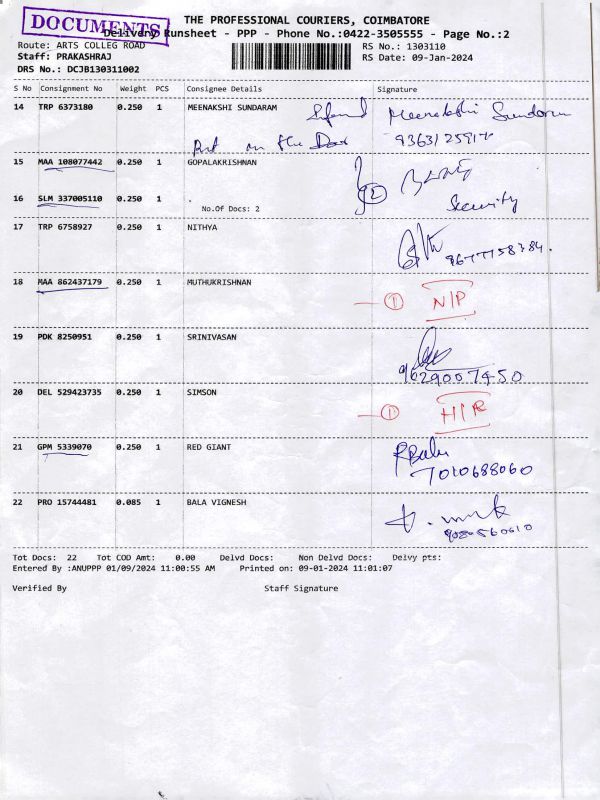 DOCUMENTS
THE PROFESSIONAL COURIERS, COIMBATORE
Delivery Runsheet - PPP - Phone No.:0422-3505555 - Page No.:2
Route: ARTS COLLEG ROAD
RS No.: 1303110
Staff: PRAKASHRAJ
RS Date: 09-Jan-2024
DRS No.: DCJB130311002
S No Consignment No Weight PCS Consignee Details Signature
14 TRP 6373180 0.250 1 MEENAKSHI SUNDARAM Meenakshi Sundaram
Put on the Door
15 MAA 108077442 0.250 1 GOPALAKRISHNAN
2
16 SLM 337005110 0.250 1 . Security
No.Of Docs: 2
17 TRP 6758927 0.250 1 NITHYA
9677758384.
18 MAA 862437179 0.250 1 MUTHUKRISHNAN
1 N/P
19 PDK 8250951 0.250 1 SRINIVASAN
9629007450
20 DEL 529423735 0.250 1 SIMSON
1 H/R
21 GPM 5339070 0.250 1 RED GIANT R Babu
7010688060
22 PRO 15744481 0.085 1 BALA VIGNESH
Tot Docs: 22 Tot COD Amt: 0.00 Delvd Docs: Non Delvd Docs: Delvy pts:
Entered By :ANUPPP 01/09/2024 11:00:55 AM Printed on: 09-01-2024 11:01:07
Verified By Staff Signature